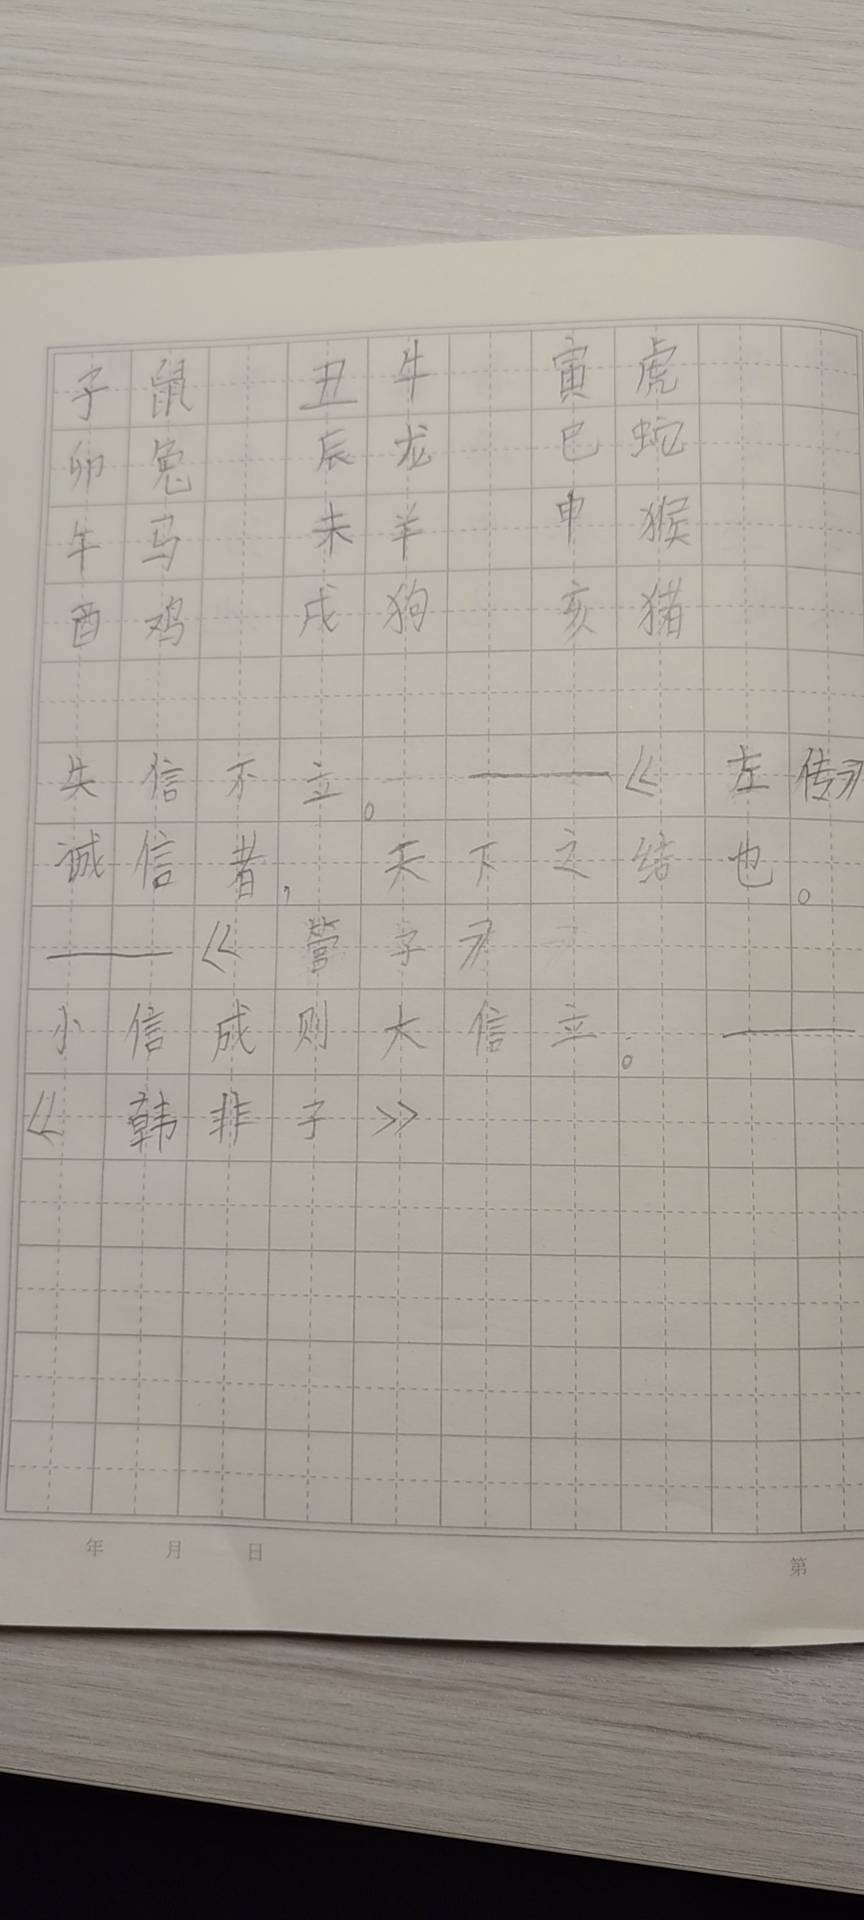 子鼠 丑牛 寅虎
卯兔 辰龙 巳蛇
午马 未羊 申猴
酉鸡 戌狗 亥猪
失信不立。——《左传》
诚信者，天下之结也。
——《管子》
小信成则大信立。——
《韩非子》
年 月 日 第